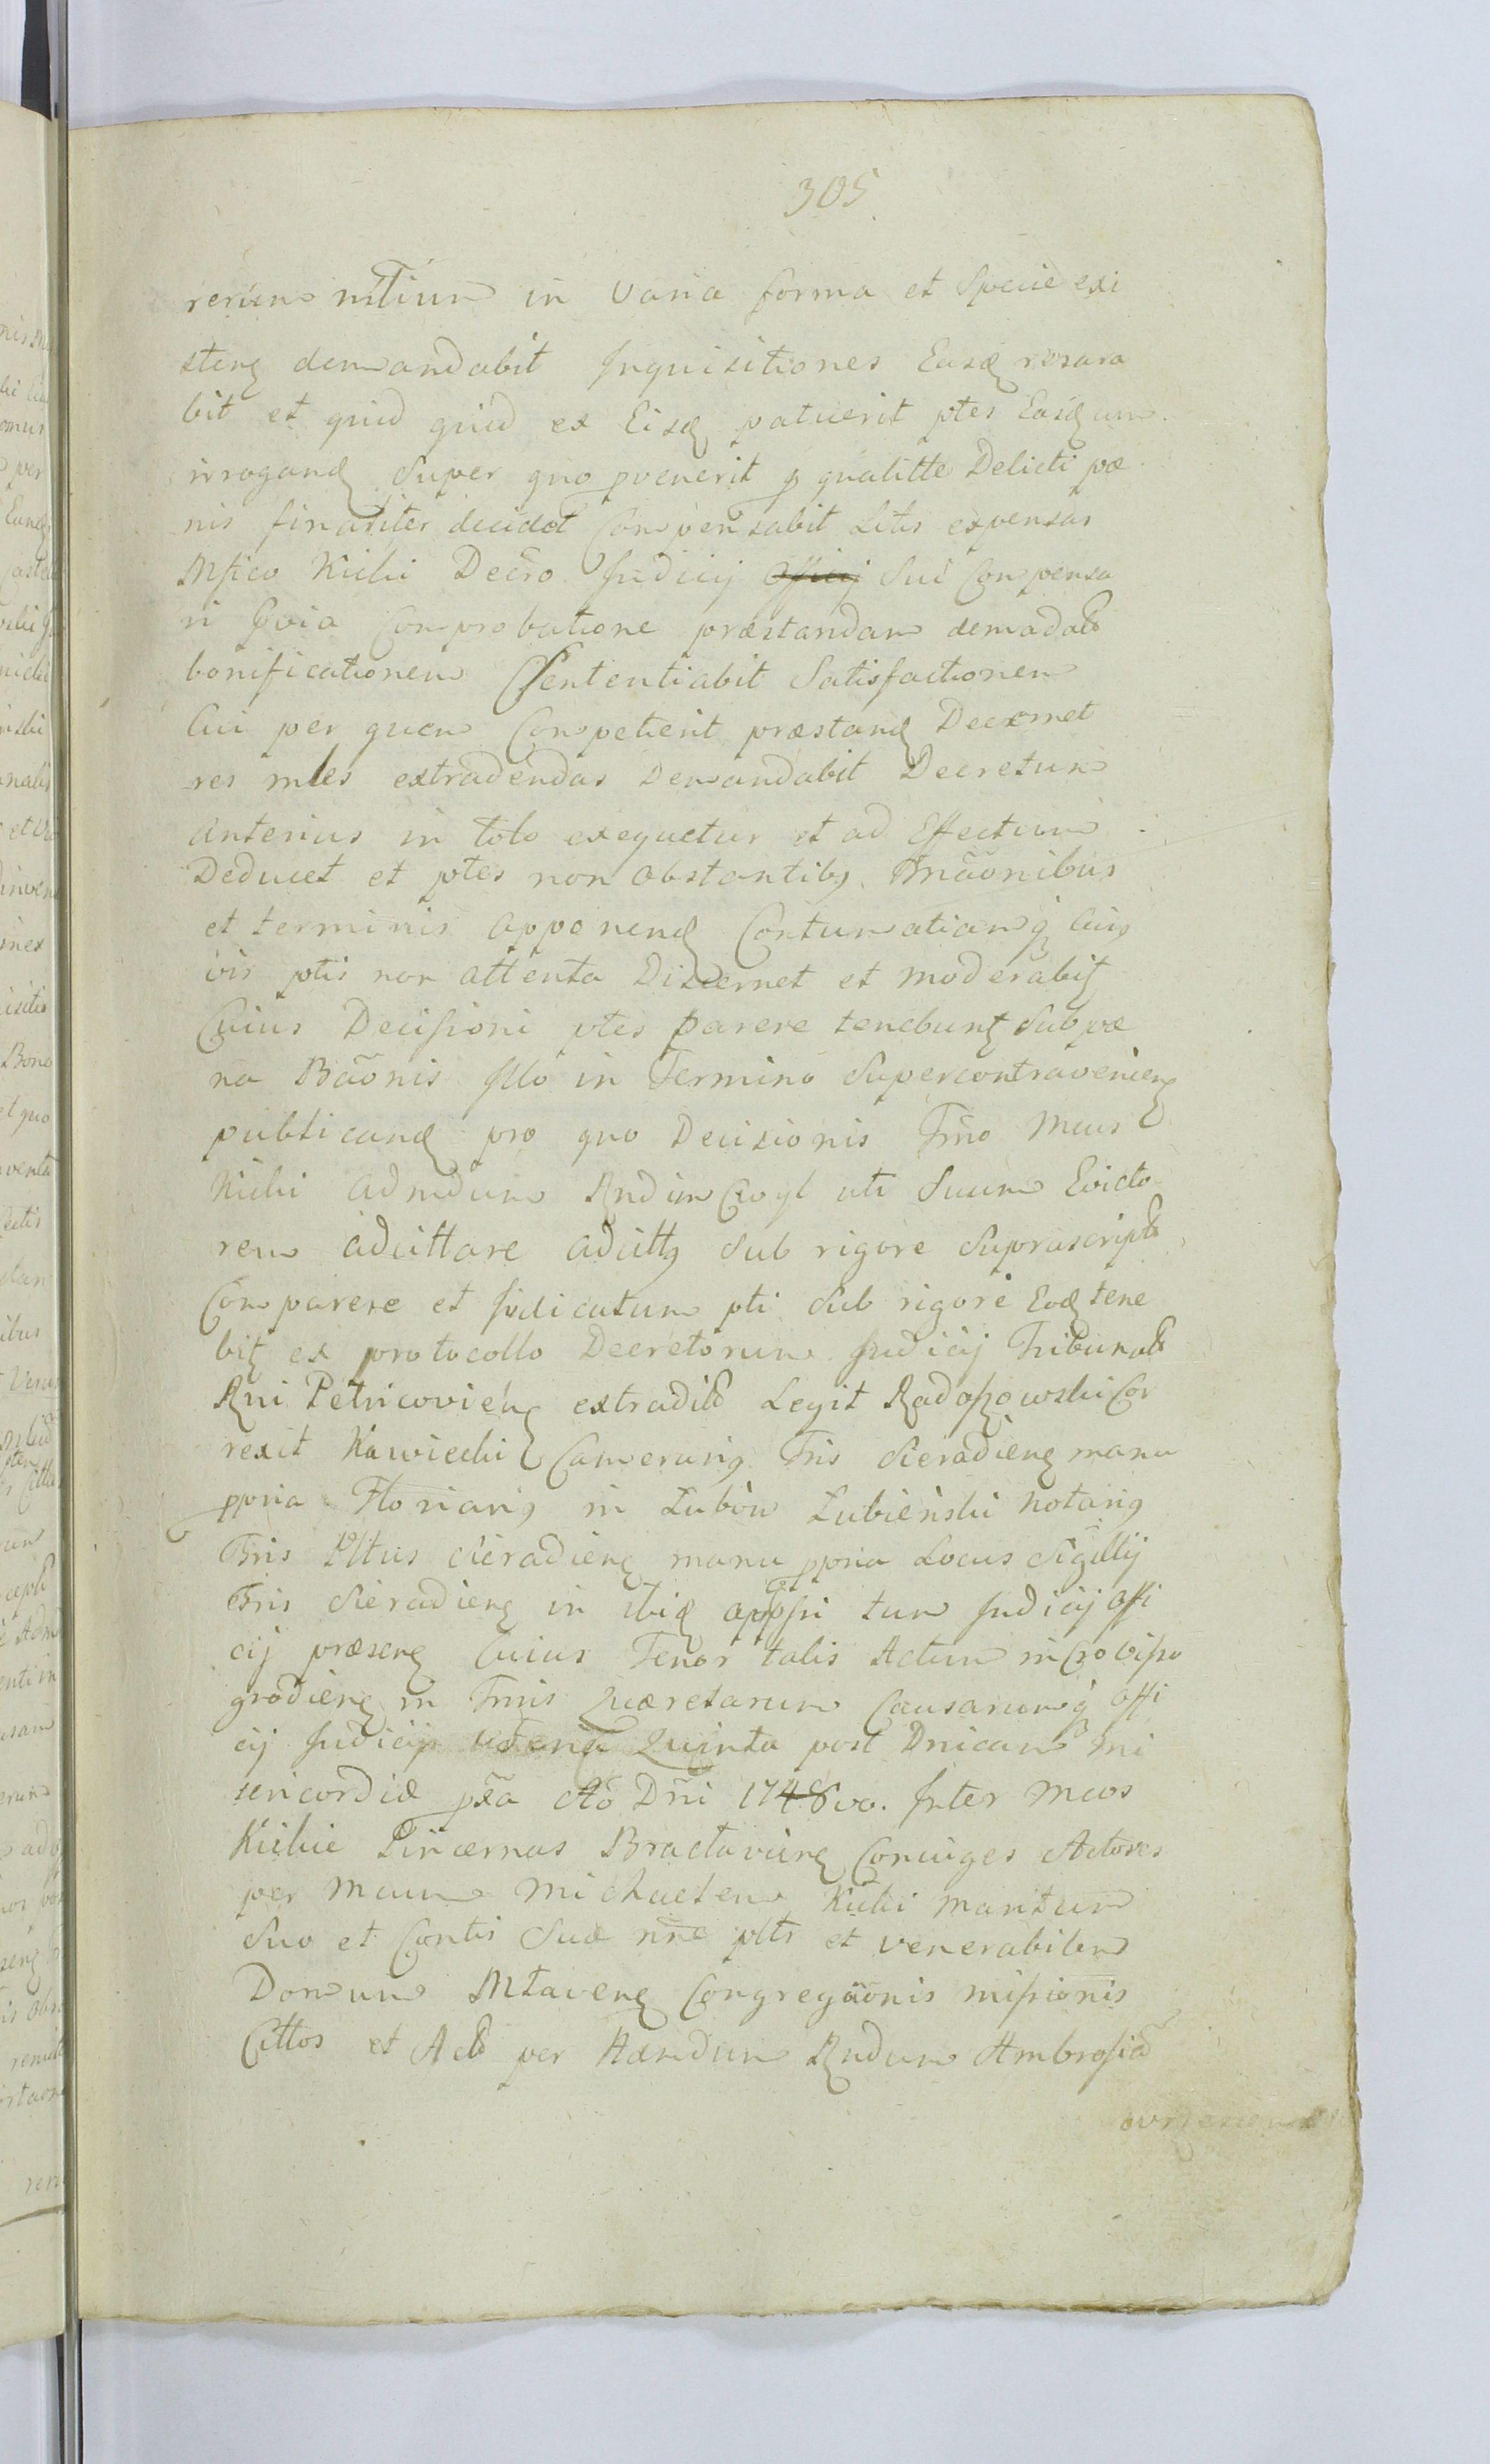 305
rerum nttium in varia forma et Specie exi
sten demandabit Inquisitiones Easq resera
bit et quid quid ex Eisd patuerit ptes Easdem
irrogand Super quo pvenerit p qualitte Delicti pæ
nis finaliter decidet Compensabit Litis expensas
Mfico Kicki Decro Judicij Officij Sui Compensa
ri pvia Comprobatione præstandam demadat
bonificationem Sententiabit Satisfactionem
Cui per quem Competierit præstand Decernet
res mles extradendas Demandabit Decretum
anterius in toto exequetur et ad Effectum
Deducet et ptes non obstantibq
et terminis apponend Contumatiamq cuiq
vis ptis non attenta Discernet et moderabit
Cuius Decisioni ptes parere tenebunt Sub pæ
na Bãonis Illo in Termino Supercontravenien
publicand pro quo Decisionis Tmo Mcus
Kicki admdum Rndum Czoyl uti Suum Evicto
rem adcittare adcittq Sub rigore Suprascripto
Comparere et Judicatum pti Sub rigore Eod tene
bit ex protocollo Decretorum Judicij Tribunalis
Rni Petricovien extradit Legit Radoszowski Cor
rexit Kawiecki Camerariq Tris Sieradien manu
ppria Florianq in Łubow Łubieński Notariq
Tris Pltus Sieradien manu ppria Locus Sigilly
Tris Sieradien in ibid appssi tum Judicij Offi
cij præsen Cuius Tenor talis Actum in
grodien in Tmis Quæretarum Causarumq Offi
cij Judicij Feria Quinta post Dnicam Mi
sericordiæ pxa Aõ Dñi 1748vo. Inter Mcos
Kickie Pincernas Braclavien Coniuges Actores
per Mcum Michaelem Kicki Maritum
Suo et Contis Suæ nne pltr et venerabilem
Domum Mlaven Congregãonis missionis
Cittos et Act per Admdum Rndum Ambrosiũ